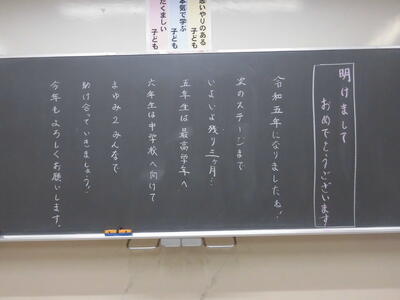 思いやりのある
子ども
本気で学ぶ
子ども
たくましい
子ども
明けまして
おめでとうございます
令和五年になりましたね!
次のステージまで
いよいよ残り三ヶ月…
五年生は最高学年へ
六年生は中学校へ向けて
まゆみ2みんなで
助け合っていきましょう!
今年もよろしくお願いします。